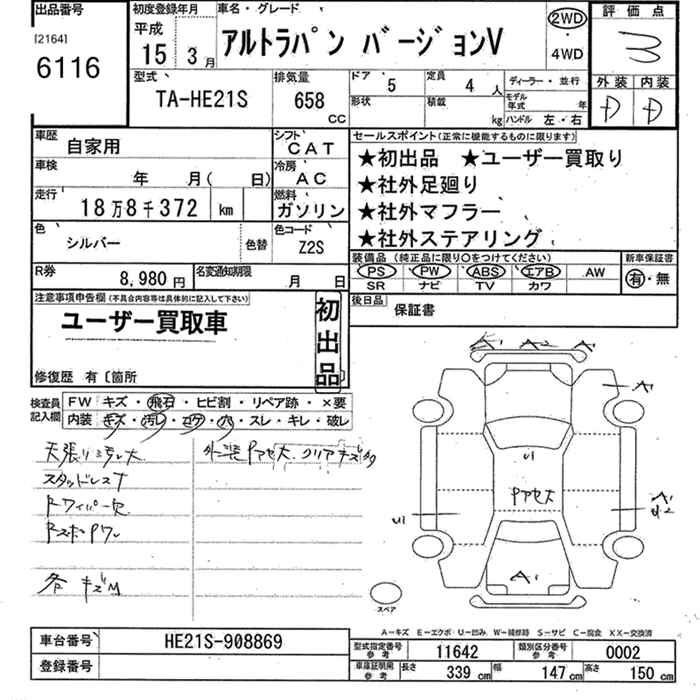 出品番号 初度登録年月 車名・グレード 評価点
[2164] 平成 アルトラパン バージョンV 2WD ・ 4WD 3
6116 15 3月
型式 排気量 ドア 5 定員 4人 ディーラー・並行 外装 内装
TA-HE21S 658 CC 形状 積載 kg モデル年式 年 D D
ハンドル 左・右
車歴 自家用 シフト CAT セールスポイント(正常に機能するものに限ります)
車検 年 月( 日) 冷房 AC ★初出品 ★ユーザー買取り
走行 18万8千372 km 燃料 ガソリン ★社外足廻り
★社外マフラー
色 シルバー 色替 色コード Z2S ★社外ステアリング
R券 8,980円 名変通知期限 月 日 装備品 (純正品に限り○をつけてください) 新車保証書
PS PW ABS エアB AW 有・無
SR ナビ TV カワ
注意事項申告欄(不具合内容等は具体的に記入して下さい) 初出品 後日品 保証書
ユーザー買取車
修復歴 有〔箇所
検査員記入欄 FW キズ・飛石・ヒビ割・リペア跡・×要
内装 キズ・汚レ・コゲ・穴・スレ・キレ・破レ
A1 A2 A1
天張り汚レ大 外装Pアセ大 クリアキズ多
スタッドレスT
Fワイパー欠
各 キズM
A1
U1
Pアセ大
U1
A1
U2
A1
スペア
A-キズ E-エクボ U-凹み W-補修跡 S-サビ C-腐食 XX-交換済
車台番号 HE21S-908869
登録番号
型式指定番号 参考 11642 類別区分番号 参考 0002
車庫証明用 参考 長さ 339cm 幅 147cm 高さ 150cm